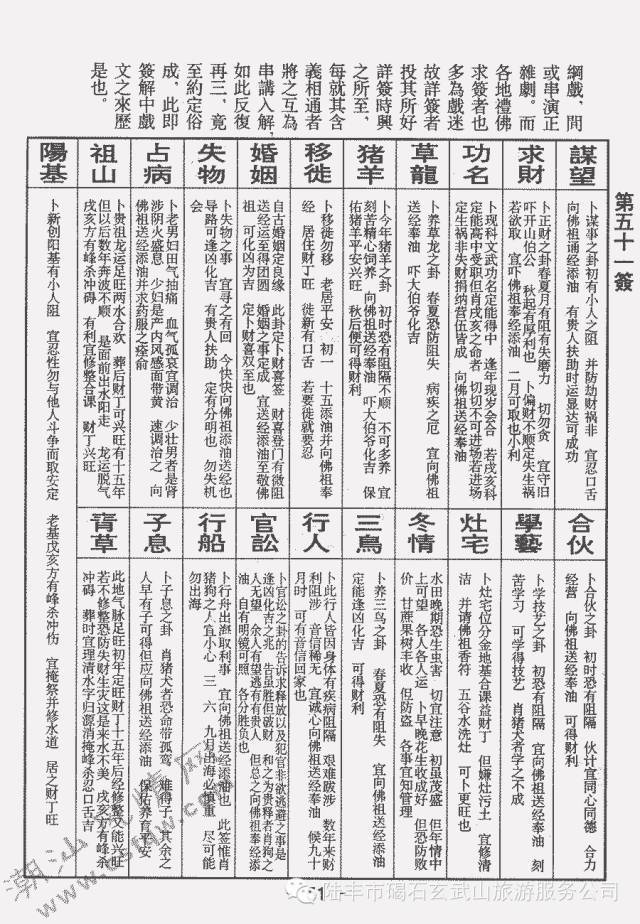 綱戲，間
或串演正
雜劇。而
各地禮佛
求簽者也
多為戲迷
故詳簽者
投其所好
詳簽時興
之所至，
每就其含
義相通者
將之互為
串講入解，
如此反復
再三，竟
至約定俗
成，此即
簽解中戲
文之來歷
是也。
第五十一簽
謀望
卜谋事之卦初有小人之阻 并防劫财祸非 宜忍口舌
向佛祖诵经添油 有贵人扶助时运显达可成功
求財
卜正财之卦春夏月有阻有失磨力 切勿贪 宜守旧
吓开山伯公 秋起有厚利也 卜偏财不顺定失生祸
若欲取 宜吓佛祖奉经添油 二月可取也小利
功名
卜现科文武功名定能得中 逢年现岁会合 若戌亥科
定能高中受职但肖戌亥之命者 切切不可进场若进场
定生祸非失财捐纳营伍皆成 向佛祖送经奉油
草龍
卜养草龙之卦 春夏恐防阻失 病疾之厄 宜向佛祖
送经奉油 吓大伯爷化吉
猪羊
卜今年猪羊之卦 初时恐有阻隔不顺 不可多养 宜
刻苦精心饲养 向佛祖送经奉油 吓大伯爷化吉 保
佑猪羊平安兴旺 秋后便可得财利
移徙
卜移徙勿移 老居平安 初一 十五添油并向佛祖奉
经 居住财丁旺 徙新有口舌 若要徙就要忍
婚姻
自古婚姻定良缘 此卦定卜财喜签 财喜登门有微阻
送经运至得团圆 婚姻之事定成 宜送经添油至敬佛
祖 可化凶为吉 定卜财喜双至也
失物
卜失物之事 宜寻之有回 今快快向佛祖添油送经也
导路可逢凶化吉 有贵人扶助 定有分明也 勿失机
会
占病
卜老男妇田气抽痛 血气孤衰宜调治 少壮男者是肾
涉阴火盛息 少妇是产内风感面带黄 速调治之 向
佛祖送经添油并求药服之痊俞
祖山
卜贵祖龙运足旺两水合欢 葬后财丁可兴旺有十五年
但以后数年奔波不顺 是面前出水阳走 龙运脱气
戌亥方有峰杀冲碍 有利宜修整合课 财丁兴旺
陽基
卜新创阳基有小人阻 宜忍性勿与他人斗争而取安定 老基戊亥方有峰杀冲伤 宜掩祭并修水道 居之财丁旺
合伙
卜合伙之卦 初时恐有阻隔 伙计宜同心同德 合力
经营 向佛祖送经奉添油 可得财利
學藝
卜学技艺之卦 初恐有阻隔 宜向佛祖送经奉油 刻
苦学习 可学得技艺 肖猪犬者学之不成
灶宅
卜灶宅位分金地基合课益财丁 但嫌灶污土 宜修清
洁 并请佛祖香符 五谷水洗灶 可卜更旺也
冬情
水田晚期恐生虫害 切宜注意 初虽茂盛 但年情中
上可望 各人各人运 卜早晚花生收成好 但恐防败
价 甘蔗果树丰收 但防盗 各事宜知管理
三鳥
卜养三鸟之卦 春夏恐有阻失 宜向佛祖送经添油
定能逢凶化吉 可得财利
行人
卜此行人皆因身体有疾病阻隔 艰难跋涉 数年来财
利阻涉 音信稀无 宜诚心向佛祖送经奉油 候九十
月时 可有音信回家也
官訟
卜官讼之卦的告诉求释放以及犯官非欲逃避之事是
逢凶化吉之兆 告虽胜但破财 和之为贵释者肖狗之
人无望 余人有望逃有有贵人 但总之向佛祖奉经添
油 自有明镜可照 各分胜负也
行船
卜行舟出海取利事 宜向佛祖送经添油也 此签惟肖
猪狗之人宜小心 三 六 九月出海必慎重 尽可能
勿出海
子息
卜子息之卦 肖猪犬者恐命带孤鸾 难得子 其余之
人早有子可得但应向佛祖送经添油 保佑养育平安
青草
此地气脉足旺初年定旺财丁十五年后经修整又能兴旺
若不修整恐防失财生灾这是来水不美 戌亥方有峰杀
冲碍 葬时宜理清水字归源消掩峰杀忍口舌吉
51
陆丰市碣石玄武山旅游服务公司